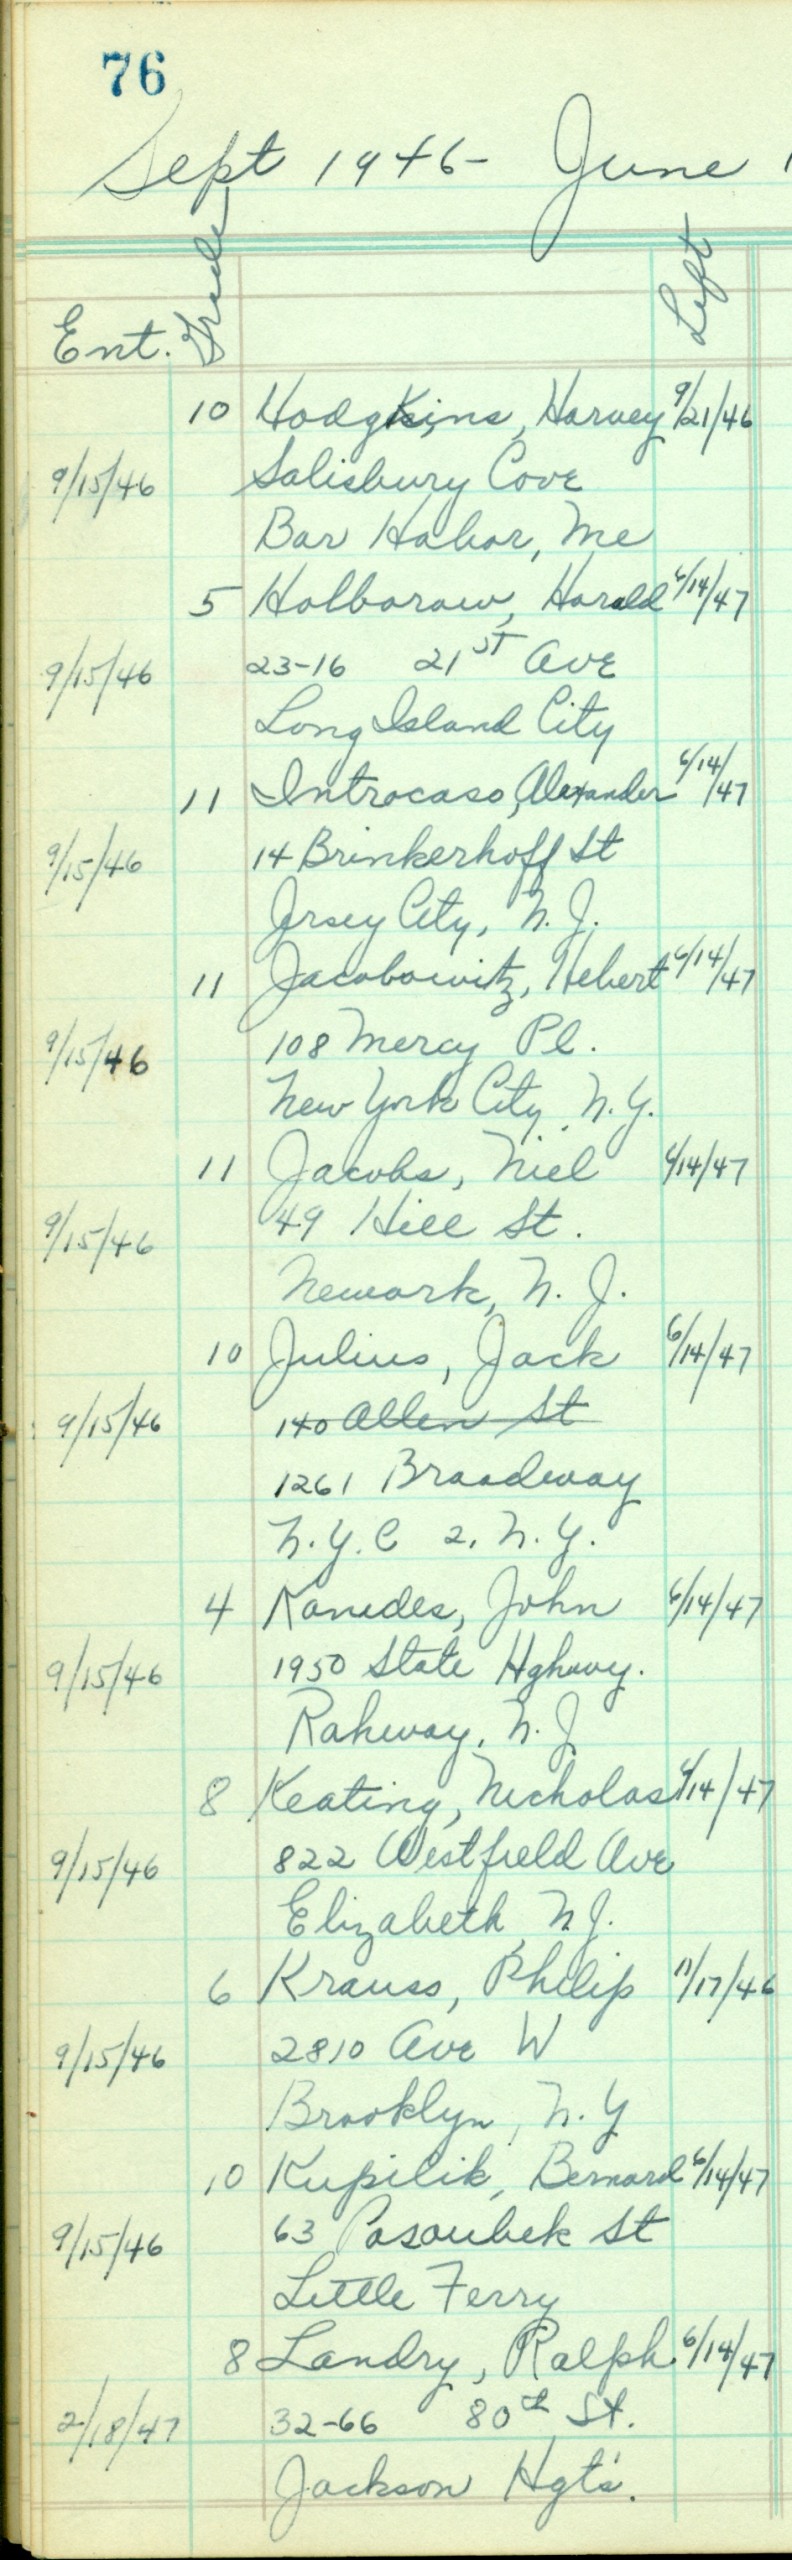 76
Sept 1946- June 1
Ent. Grade Left
10 Hodgkins, Harvey 9/21/46
9/15/46 Salisbury Cove
Bar Habor, Me
5 Holborow, Harold 6/14/47
9/15/46 23-16 21ST Ave
Long Island City
11 Introcaso, Alexander 6/14/47
9/15/46 14 Brinkerhoff St
Jersey City, N.J.
11 Jacobowitz, Hebert 6/14/47
9/15/46 108 Mercy Pl.
New York City, N.Y.
11 Jacobs, Niel 6/14/47
9/15/46 49 Hill St.
Newark, N.J.
10 Julius, Jack 6/14/47
9/15/46 140 Allen St
1261 Broadway
N.Y.C 2, N.Y.
4 Kanedes, John 6/14/47
9/15/46 1950 State Hghwy.
Rahway, N.J
8 Keating, Nicholas 6/14/47
9/15/46 822 Westfield Ave
Elizabeth, N.J.
6 Krauss, Philip 11/17/46
9/15/46 2810 Ave W
Brooklyn, N.Y
10 Kupilik, Bernard 6/14/47
9/15/46 63 St
Little Ferry
8 Landry, Ralph 6/14/47
2/18/47 32-66 80th St.
Jackson Hgts.